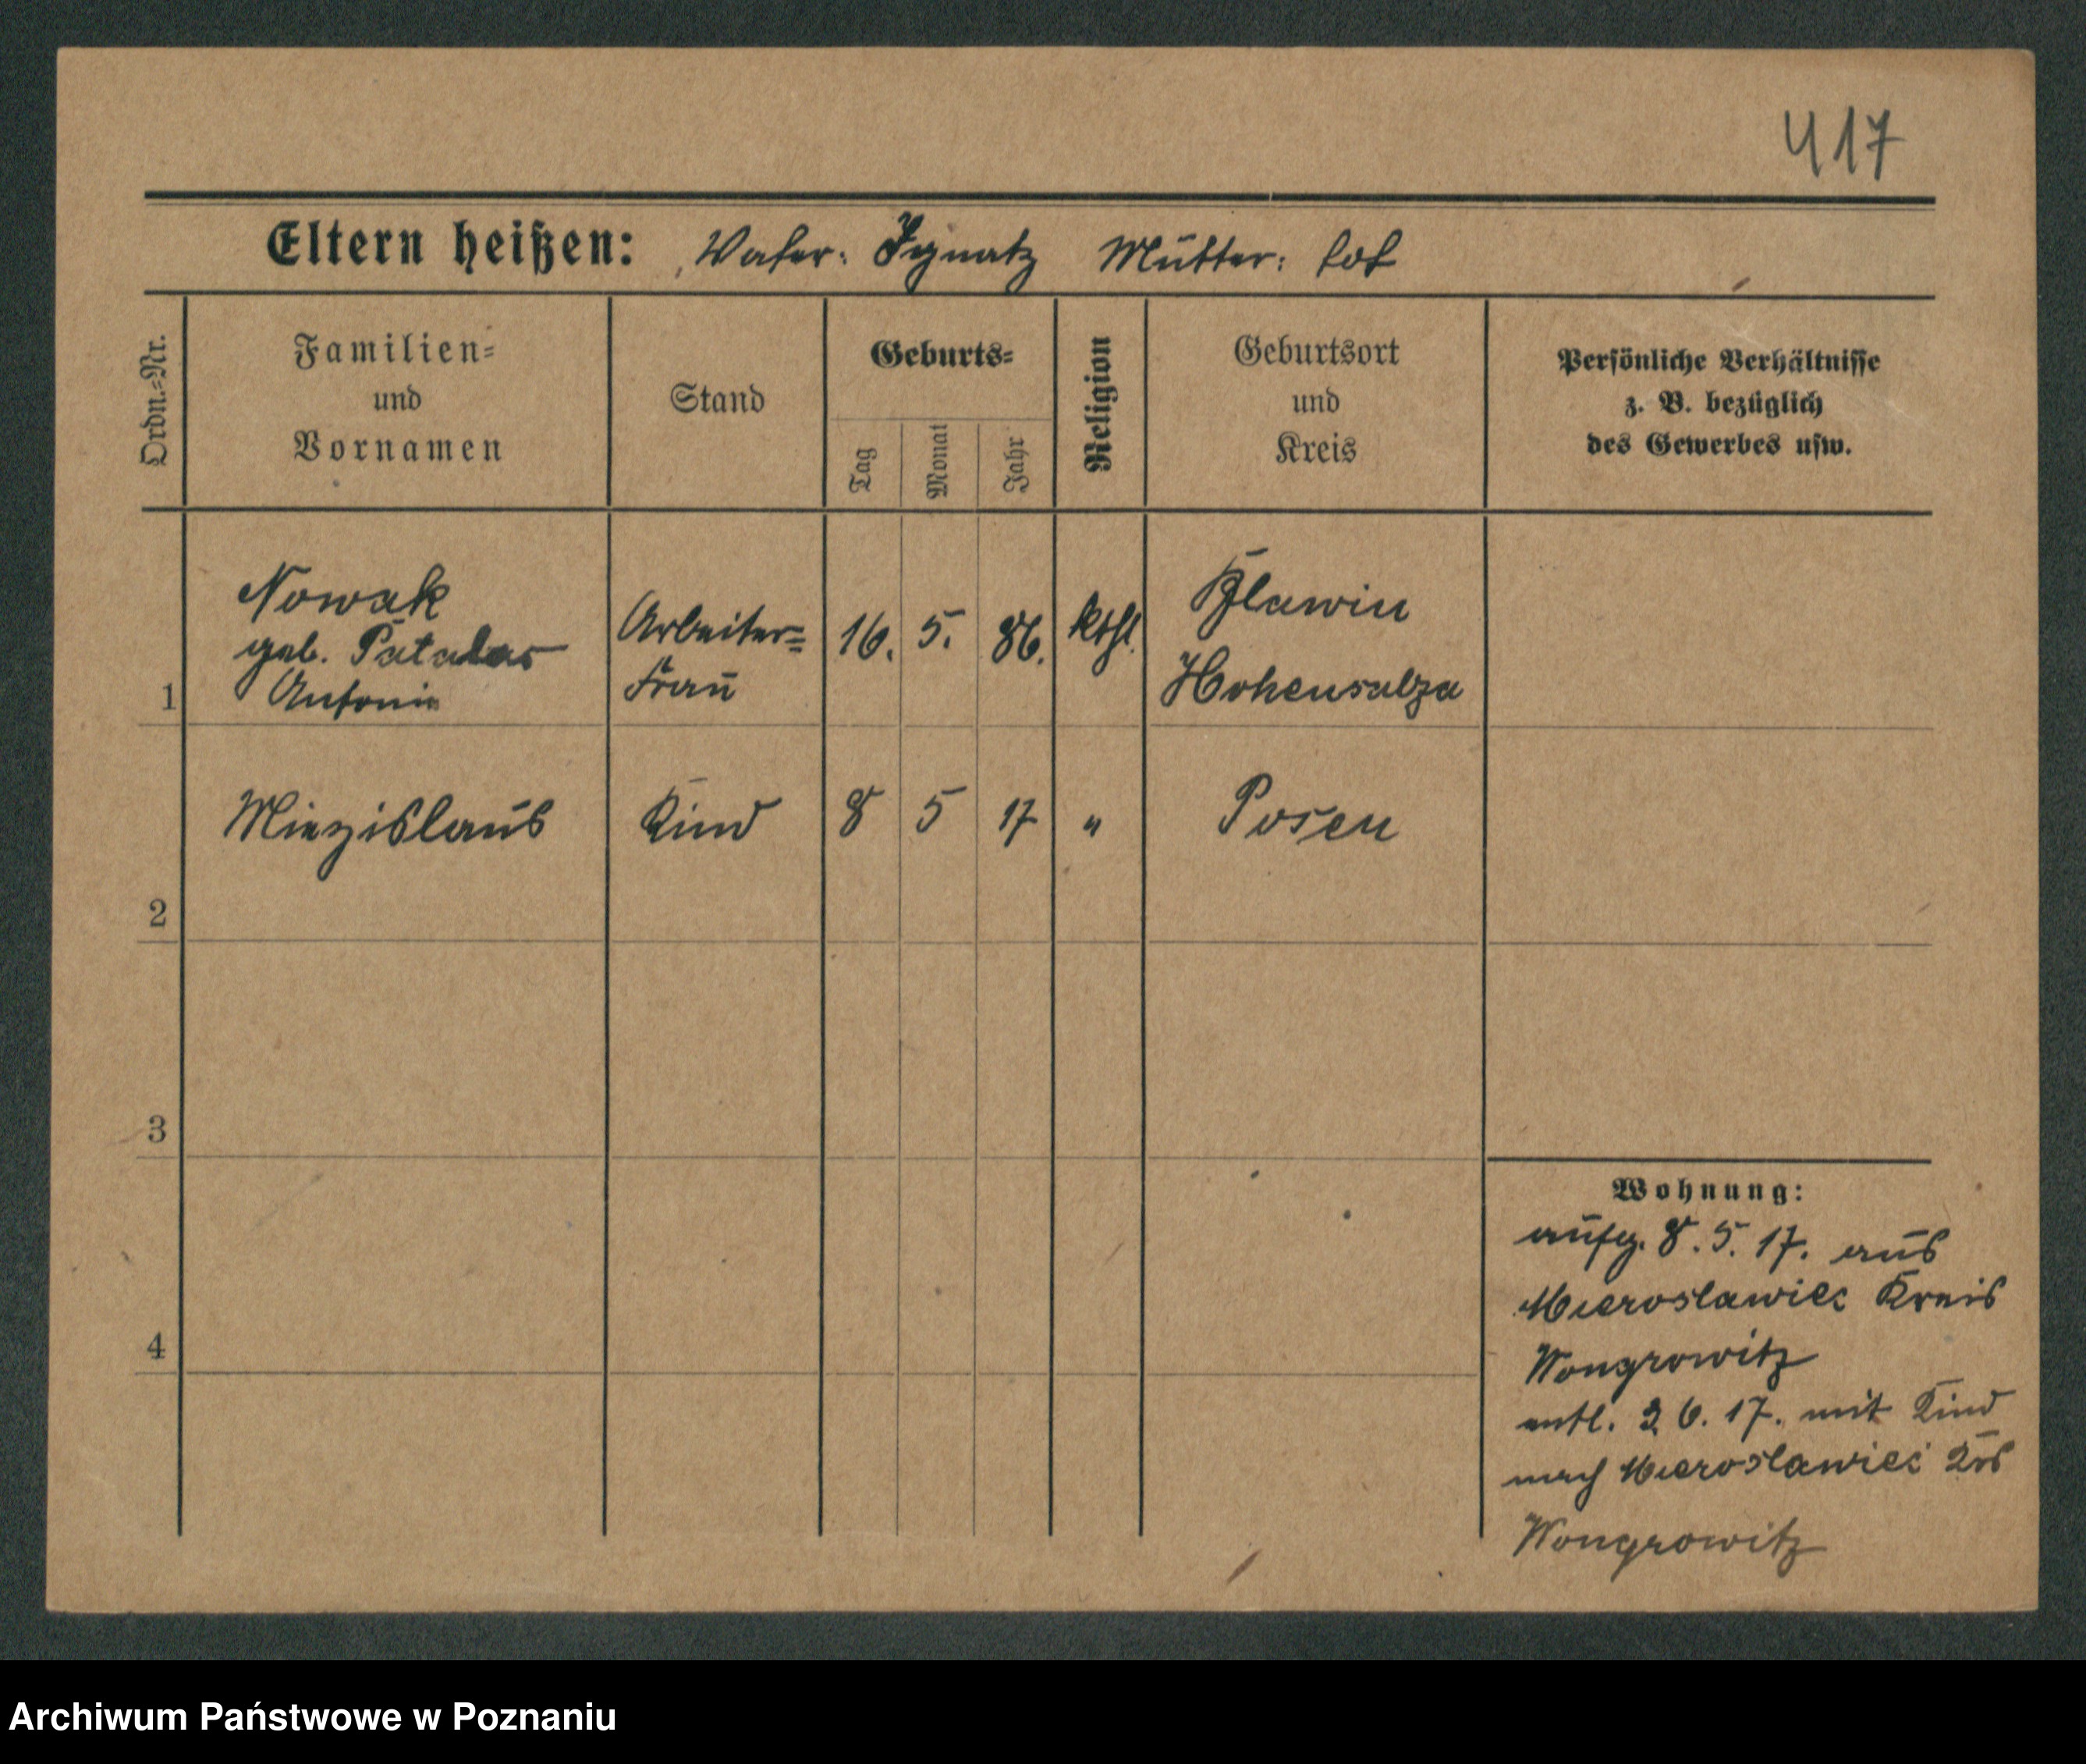 417
Eltern heißen: Vater: Ignatz Mutter: tot
Ordn.=Nr.
Familien=
und
Vornamen
Stand
Geburts=
Tag
Monat
Jahr
Religion
Geburtsort
und
Kreis
Persönliche Verhältnisse
z. B. bezüglich
des Gewerbes usw.
1
Nowak
geb. Patalas
Antonie
Arbeiter=
Frau
16. 5. 86.
kthl.
Hohensalza
2
Miezislaus
Kind
8 5 17
"
Posen
3
4
Wohnung:
aufg. 8. 5. 17. aus
Mieroslawiec Kreis
Wongrowitz
entl. 2 6. 17. mit Kind
nach Mieroslawiec Krs
Wongrowitz
Archiwum Państwowe w Poznaniu